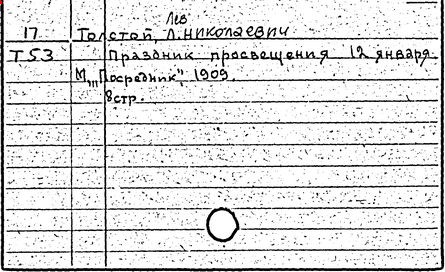 Лев
17 Толстой, Л. Николаевич
Т53 Праздник просвещения 12 января
М., „Посредник", 1909
8 стр.